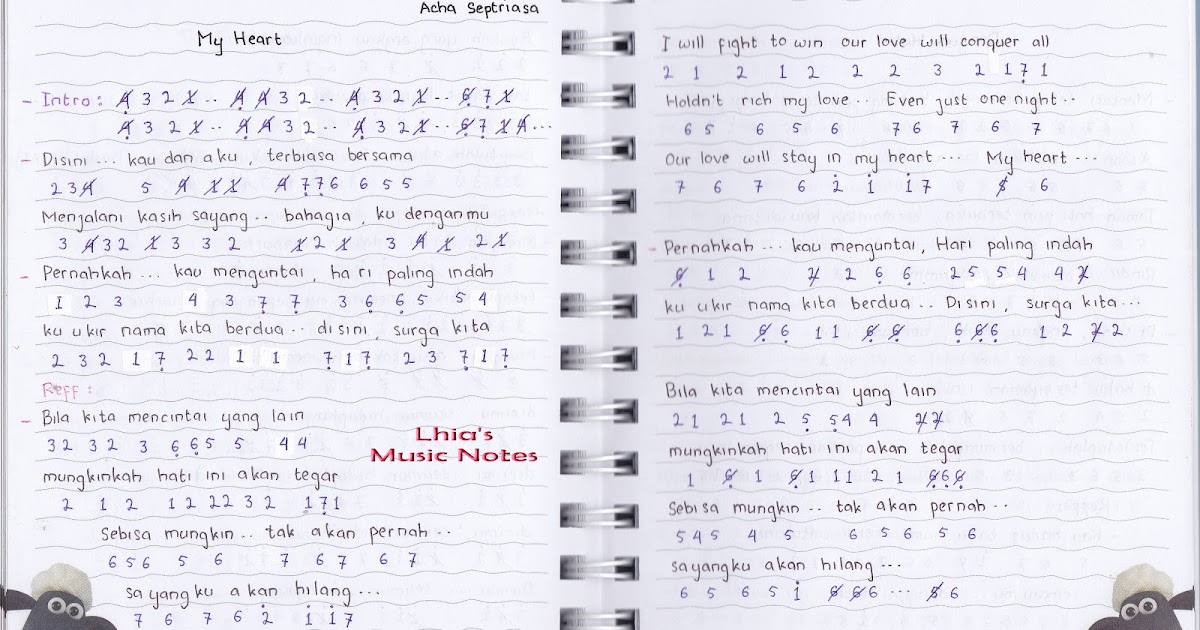 Acha Septriasa
My Heart
- Intro : 4 3 2 1 .. 4 4 3 2 .. 4 3 2 1 .. 6 7 1
4 3 2 1 .. 4 4 3 2 .. 4 3 2 1 .. 6 7 1 4 ...
- Disini ... kau dan aku , terbiasa bersama
2 3 4 5 4 1 1 4 7 7 6 6 5 5
Menjalani kasih sayang .. bahagia , ku denganmu
3 4 3 2 1 3 3 2 1 2 1 3 4 1 2 1
- Pernahkah ... kau menguntai , hari paling indah
1 2 3 4 3 7 7 3 6 6 5 5 4
ku ukir nama kita berdua .. disini , surga kita
2 3 2 1 7 2 2 1 1 7 1 7 2 3 7 1 7
Reff :
- Bila kita mencintai yang lain
3 2 3 2 3 6 6 5 5 4 4
mungkinkah hati ini akan tegar
2 1 2 1 2 2 2 3 2 1 7 1
Sebisa mungkin .. tak akan pernah ..
6 5 6 5 6 7 6 7 6 7
sayangku akan hilang ...
7 6 7 6 2 1 1 7
Lhia's
Music Notes
I will fight to win our love will conquer all
2 1 2 1 2 2 2 3 2 1 7 1
Holdn't rich my love .. Even just one night ..
6 5 6 5 6 7 6 7 6 7
Our love will stay in my heart ... My heart ...
7 6 7 6 2 1 1 7 5 6
- Pernahkah ... kau menguntai , Hari paling indah
6 1 2 2 2 6 6 2 5 5 4 4 2
ku ukir nama kita berdua .. Disini , surga kita ...
1 2 1 6 6 1 1 6 6 6 6 6 1 2 2 2
Bila kita mencintai yang lain
2 1 2 1 2 5 5 4 4 2 2
mungkinkah hati ini akan tegar
1 6 1 6 1 1 1 2 1 6 6 6
Sebisa mungkin .. tak akan pernah ..
5 4 5 4 5 6 5 6 5 6
sayangku akan hilang ...
6 5 6 5 1 6 6 6 ... 5 6